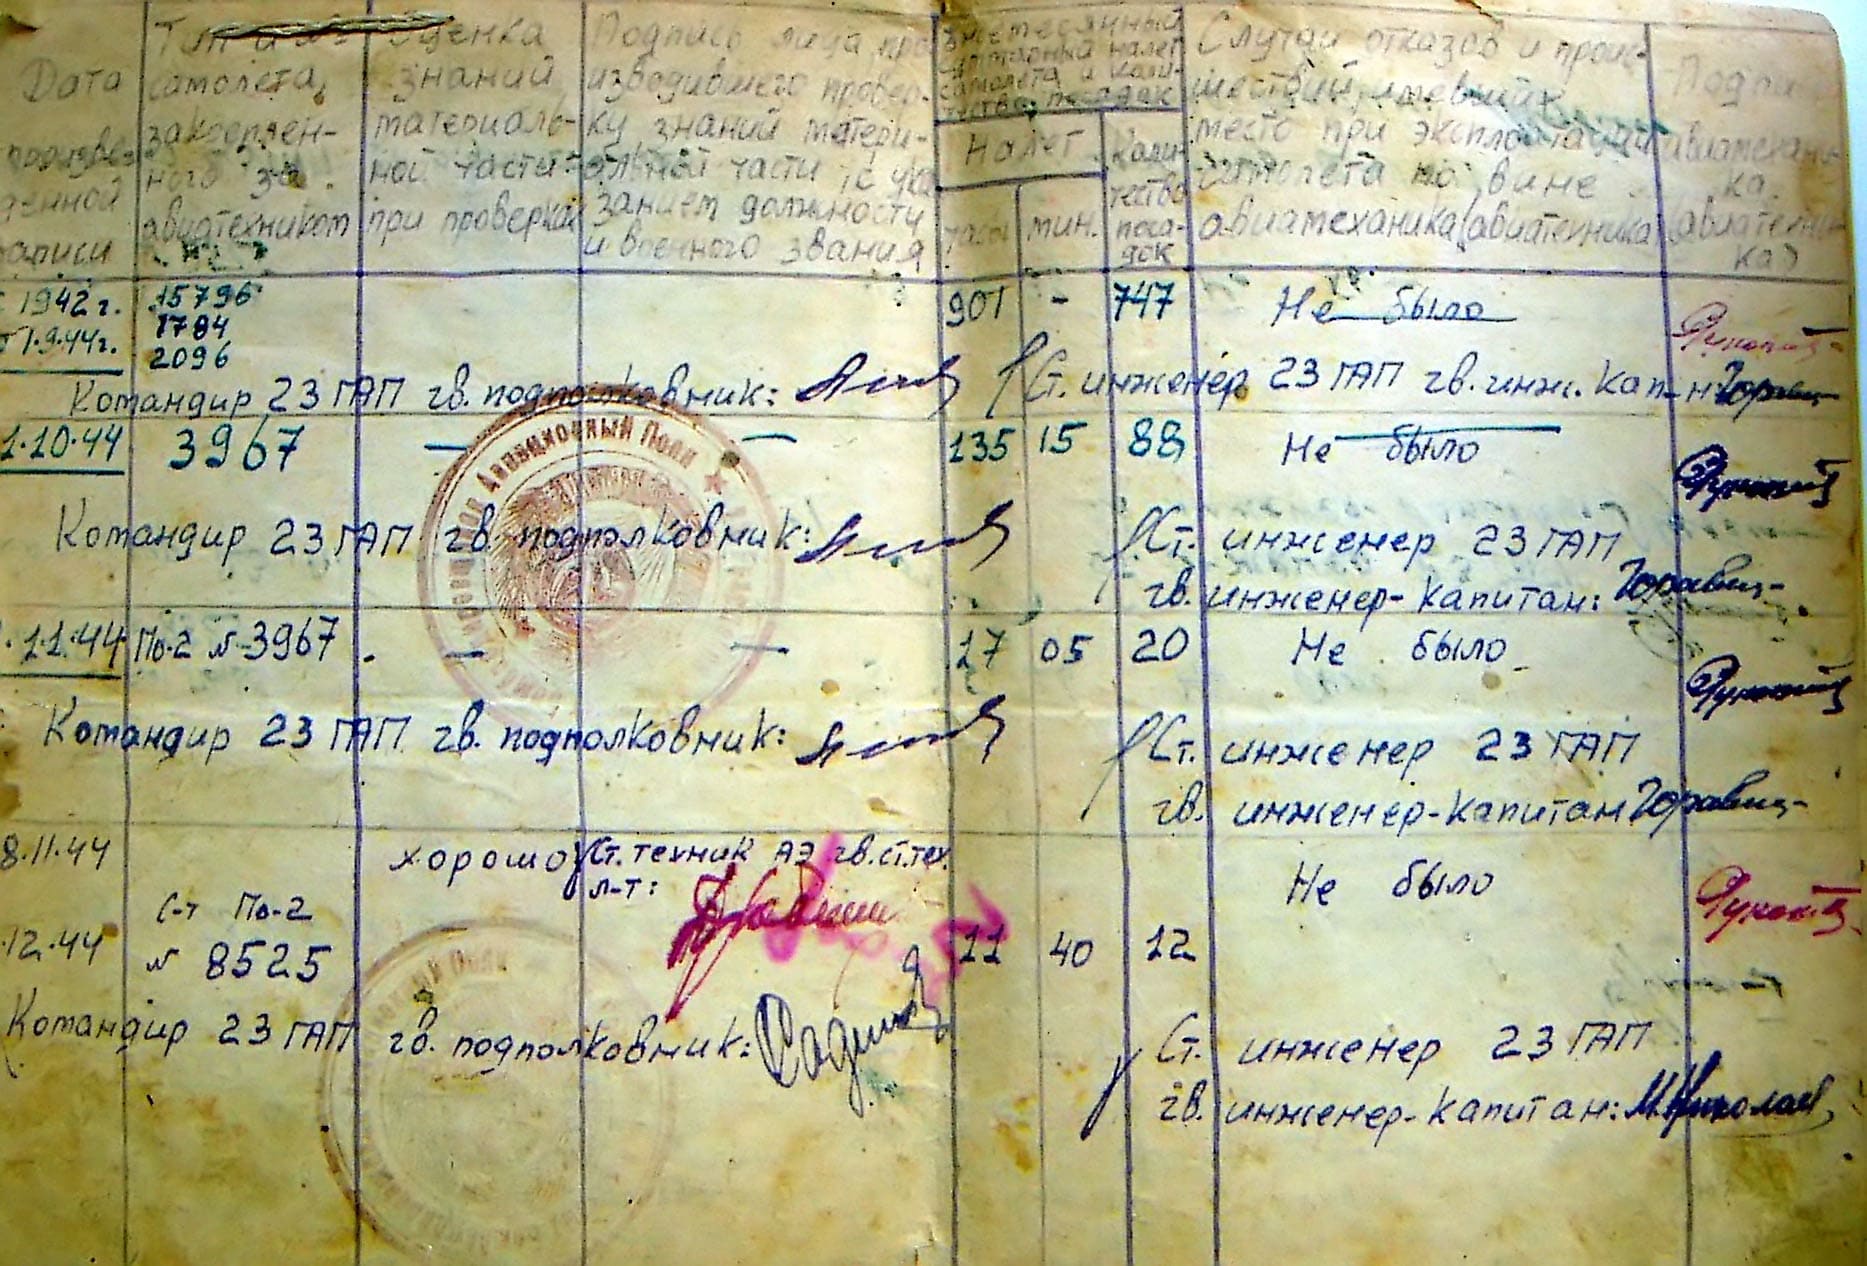 Дата
записи
Тип и №
самолета,
закреплен-
ного за
авиатехником
Оценка
знаний
материаль-
ной части
при проверке
Подпись лица, про-
изводившего провер-
ку знаний матери-
альной части (с ука
занием должности
и военного звания
самолета и коли-
чество посадок
Налет
часы
мин.
Коли-
чество
поса-
док
Случаи отказов и проис-
шествий, имевших
место при эксплоатации
самолета по вине
авиамеханика (авиатехника)
Подпись
авиамехани-
ка
(авиатехни-
ка)
1942 г. 15796 901 - 747 Не было
1.9.44г. 1784
2096
Командир 23 ГАП гв. подполковник: Ст. инженер 23 ГАП гв. инж. кап-н
1.10.44 3967 — — 135 15 88 Не было
Командир 23 ГАП гв. подполковник: Ст. инженер 23 ГАП
гв. инженер-капитан:
1.11.44 По-2 № 3967 — — 17 05 20 Не было
Командир 23 ГАП гв. подполковник: Ст. инженер 23 ГАП
гв. инженер-капитан
8.11.44 хорошо Ст. техник АЭ гв. ст. тех.
л-т: Не было
С-т По-2
12.44 № 8525 11 40 12
Командир 23 ГАП гв. подполковник: Ст. инженер 23 ГАП
гв. инженер-капитан: М. Николаев
Авиационный Полк